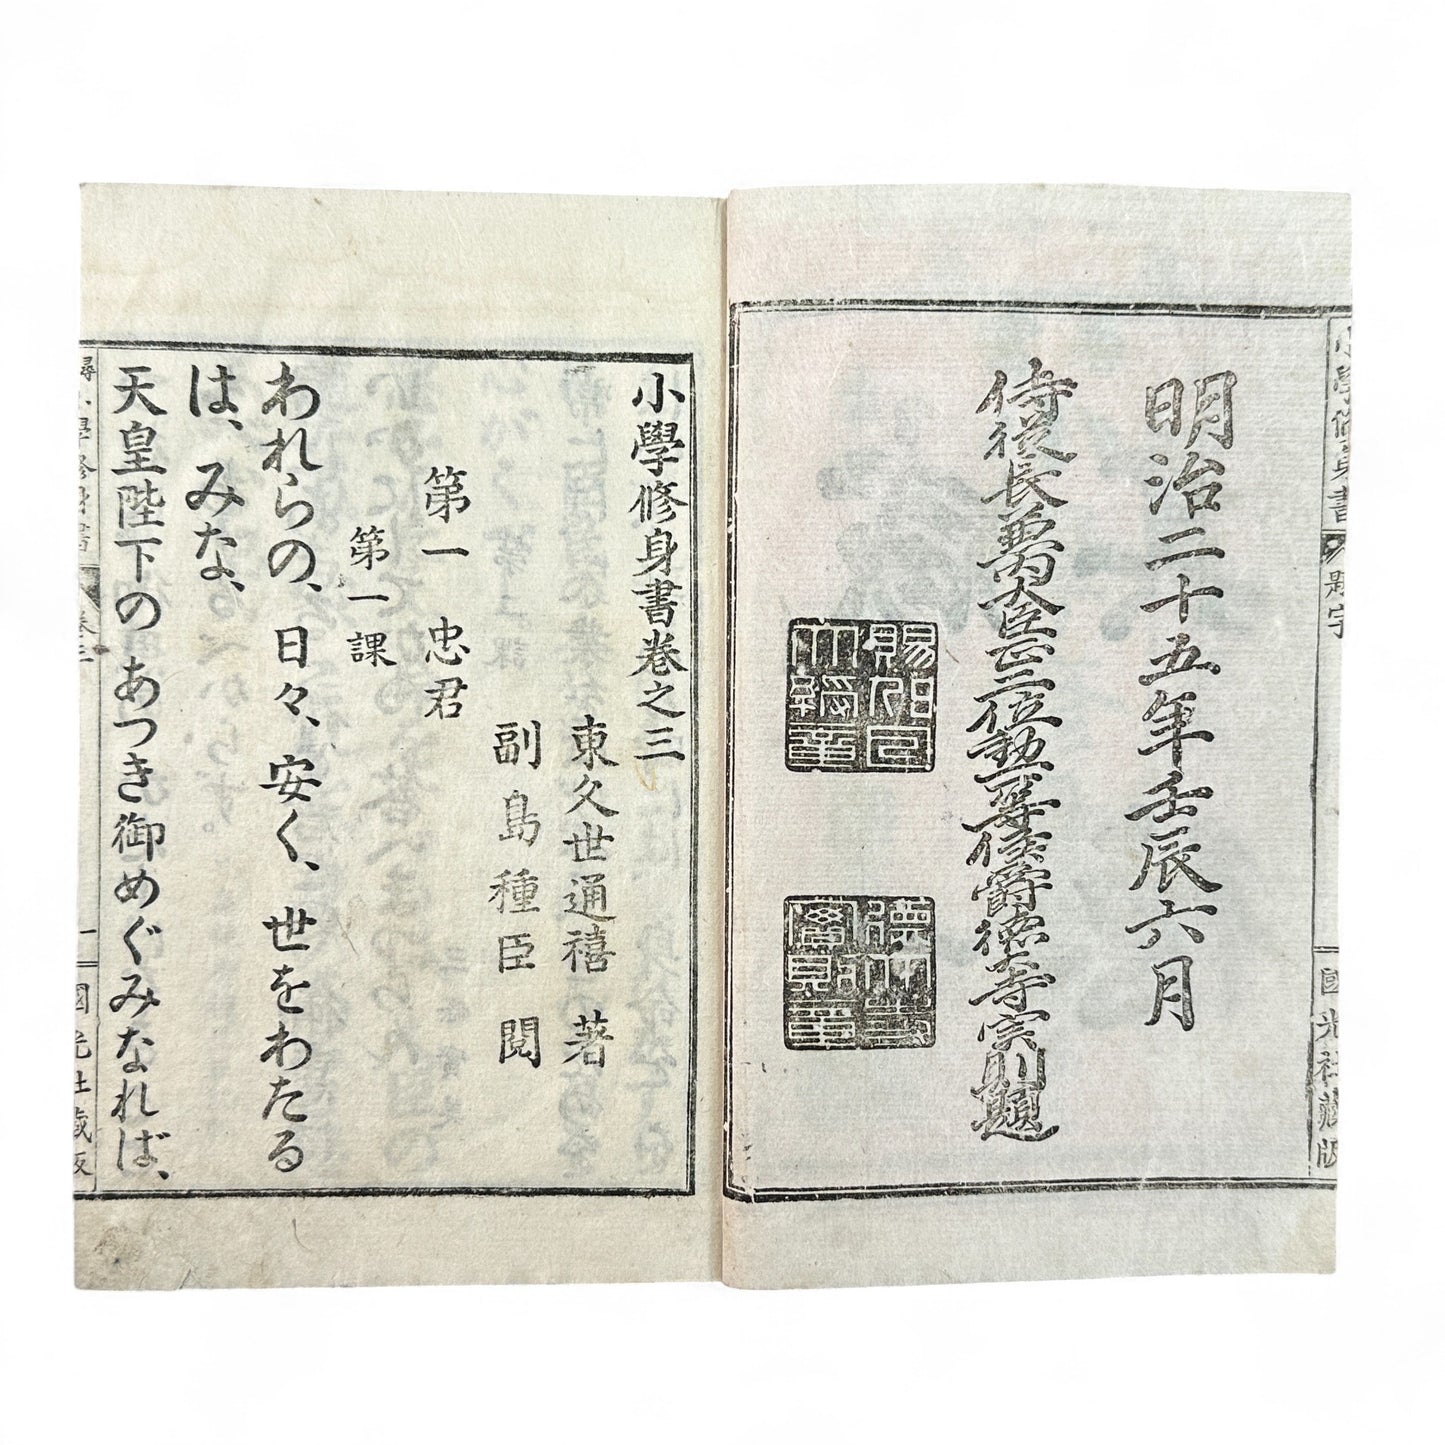 小學修身書
題字
國光社藏版
明治二十五年壬辰六月
侍從長兼內大臣正三位勲一等侯爵德大寺實則題
小學修身書卷之三
東久世通禧 著
副島種臣 閲
第一 忠君
第一課
われらの、日々、安く、世をわたる
は、みな、
天皇陛下の あつき御めぐみなれば、
尋常小學修身書
卷三
一
國光社藏版